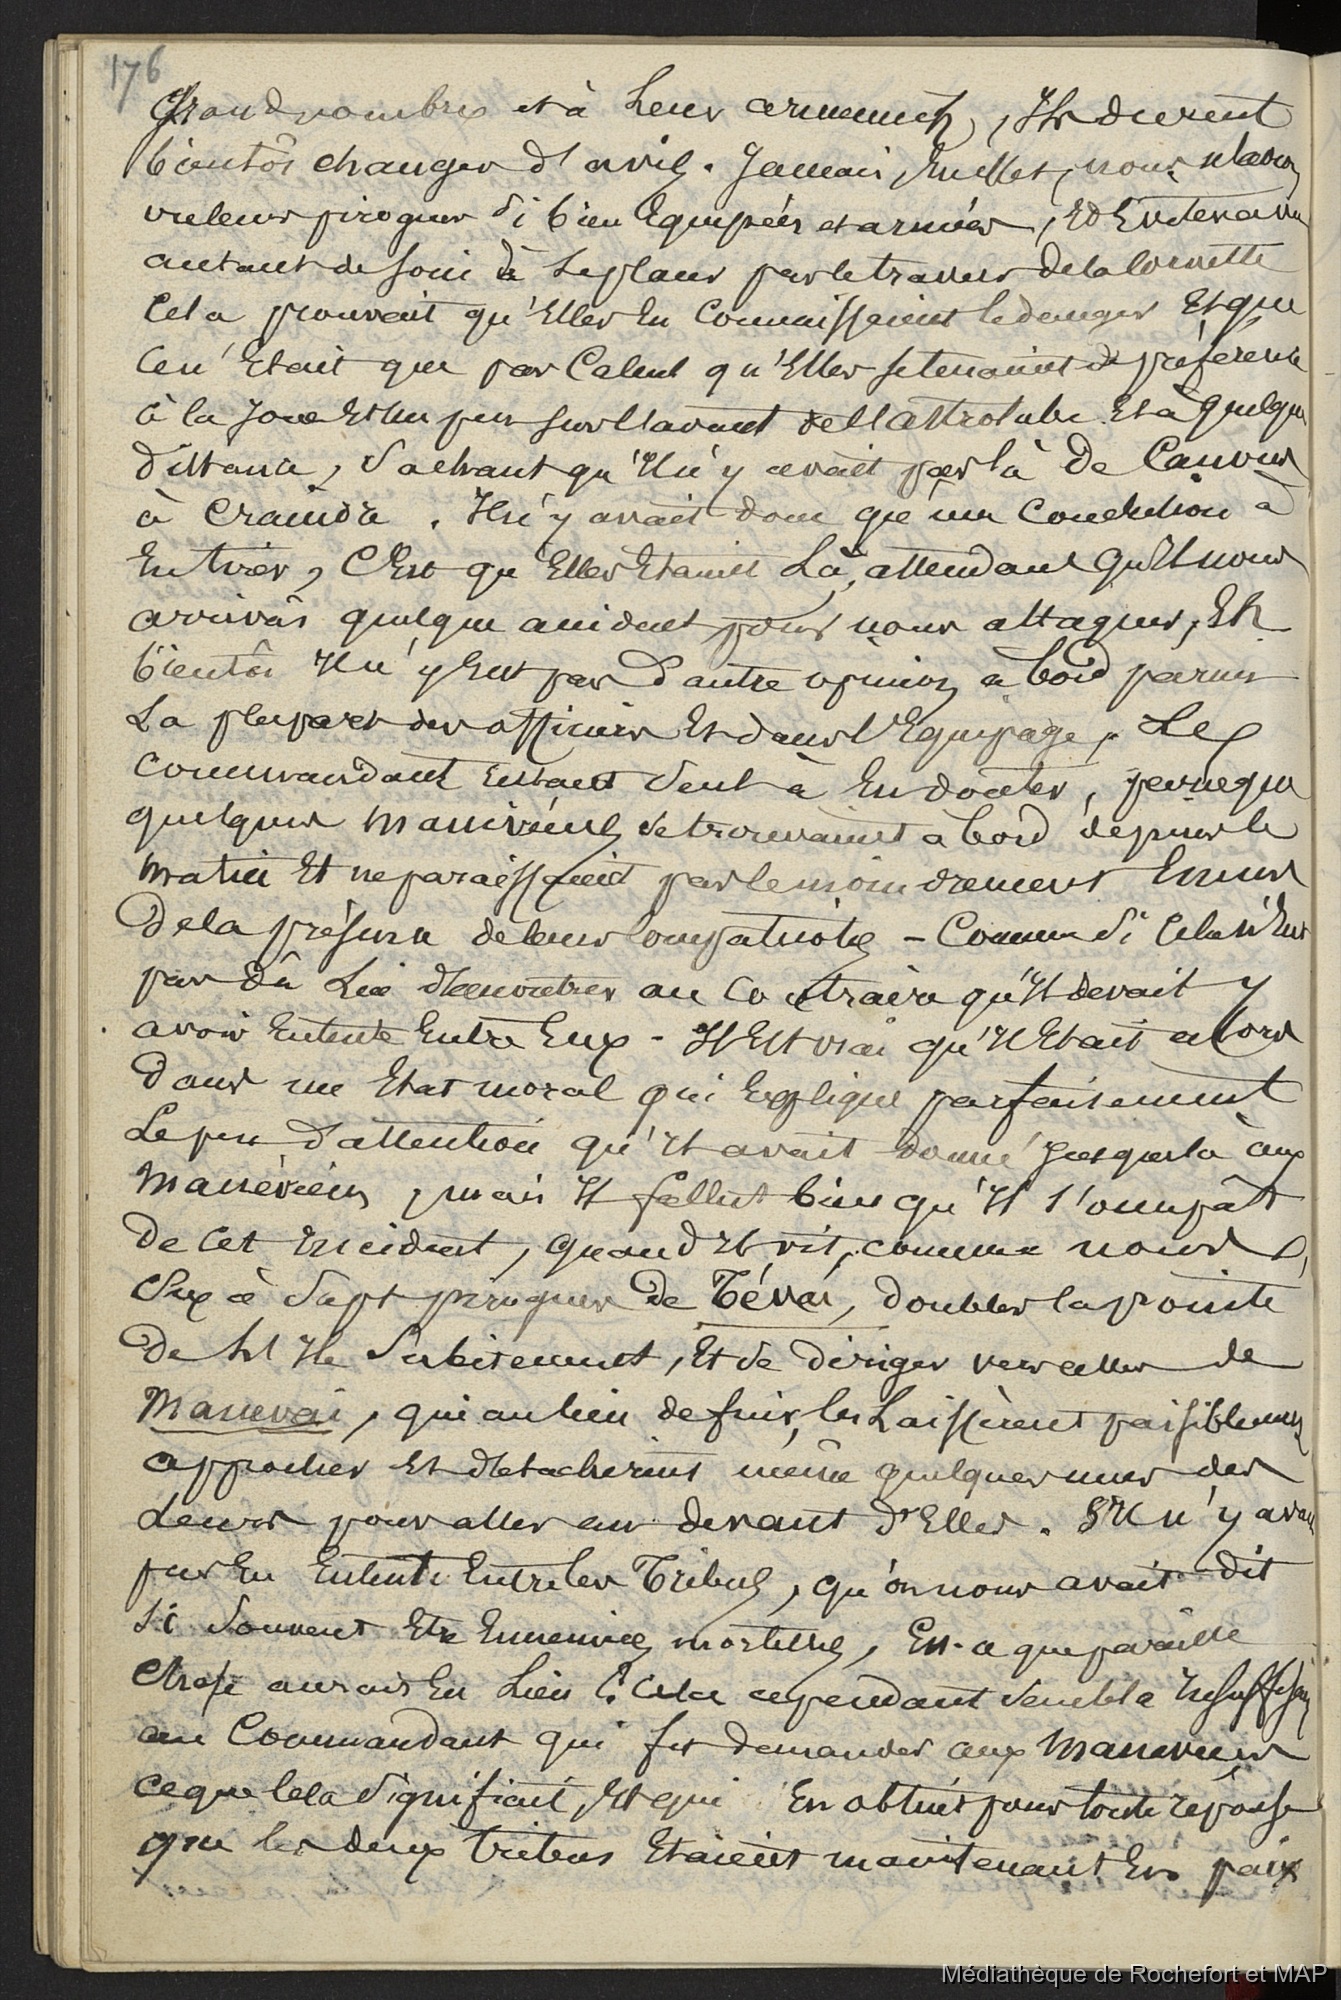 176
Grand nombre et à Leur armement, Ils durent
bientôt changer d'avis. Jamais, En effet, nous n'avions
vu leurs pirogues si bien Equipées et armées, Et Eviter avec
autant de soin de se placer par le travers de la Corvette
Cela prouvait qu'Elles En Connaissaient le danger Et que
Ce n'Etait que par Calcul qu'Elles se tenaient de préférence
à la Joue Et un peu sur l'avant de l'Astrolabe Et à quelque
distance, Sachant qu'Il n'y avait pas là de Canons
à Craindre. Il n'y avait donc qu'une Conclusion à
En tirer, C'Est qu'Elles Etaient Là, attendant qu'Il nous
arrivât quelque accident pour nous attaquer, Et
bientôt Il n'y Eut pas d'autre opinion à bord parmi
La plupart des officiers Et dans l'Equipage. Le
Commandant restant Seul à En douter, parce que
quelques Manévéens se trouvaient à bord depuis le
matin Et ne paraissaient pas le moindrement Emus
De la présence de leurs Compatriotes – Comme Si Cela n'Eut
pas dû Lui démontrer au Contraire qu'Il devait y
avoir Entente Entre Eux - Il Est vrai qu'Il Etait alors
Dans un Etat moral qui Explique parfaitement
Le peu d'attention qu'Il avait donné Jusque là aux
Manévéens, mais Il fallut bien qu'Il s'occupât
De Cet Incident, quand Il vit, comme nous,
Six à Sept pirogues De Tévai, Doubler la pointe
De L'Ile Subitement, Et se diriger vers celles de
Manevai, qui au lieu de fuir, les Laissèrent paisiblement
approcher Et détachèrent même quelques unes des
Leurs pour aller au devant d'Elles. S'Il n'y avait
pas Eu Entente Entre les Tribus, qu'on nous avait dit
Si Souvent Etre Ennemies mortelles, Est-ce que pareille
Chose aurait Eu Lieu ? Cela cependant Sembla Insuffisant
au Commandant qui fit demander aux Manevéens
Ce que Cela Signifiait, Et qui En obtint pour toute réponse
que les deux tribus Etaient maintenant En paix
Médiathèque de Rochefort et MAP